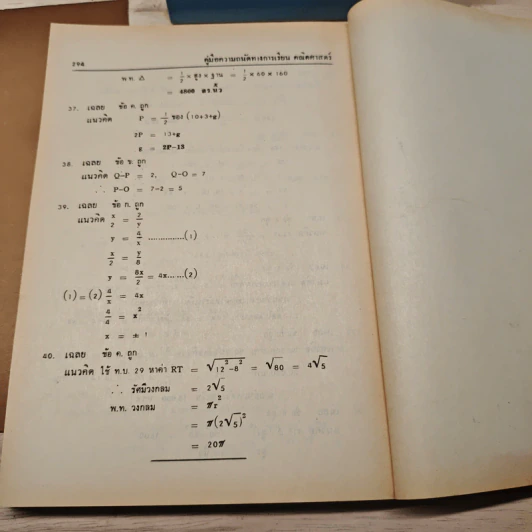 298 คู่มือความถนัดทางการเรียน คณิตศาสตร์
พ.ท. △ = 1/2 × สูง × ฐาน = 1/2 × 60 × 160
= 4800 ตร.นิ้ว
37. เฉลย ข้อ ค. ถูก
แนวคิด P = 1/2 ของ (10+3+g)
2P = 13+g
g = 2P-13
38. เฉลย ข้อ ข. ถูก
แนวคิด Q-P = 2, Q-O = 7
∴ P-O = 7-2 = 5
39. เฉลย ข้อ ก. ถูก
แนวคิด x/2 = 2/y
y = 4/x ...............(1)
x/2 = y/8
y = 8x/2 = 4x......(2)
(1) = (2) 4/x = 4x
4/4 = x²
x = ± 1
40. เฉลย ข้อ ค. ถูก
แนวคิด ใช้ ท.บ. 29 หาค่า RT = √(12²-8²) = √80 = 4√5
∴ รัศมีวงกลม = 2√5
พ.ท. วงกลม = πr²
= π(2√5)²
= 20π